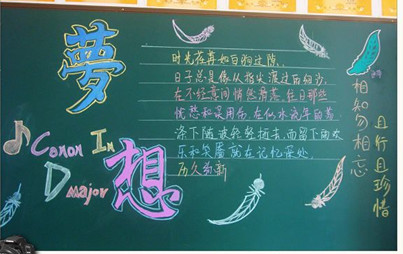 夢
想
Canon In
D major
时光荏苒如白驹过隙,
日子总是像从指尖渡过的细沙,
在不经意间悄然滑落。往日那些
忧愁和误用伤,在似水流年的荡
涤下随波轻轻逝去,而留下的欢
乐和笑靥就在记忆深处,
历久弥新
相知勿相忘
且行且珍惜